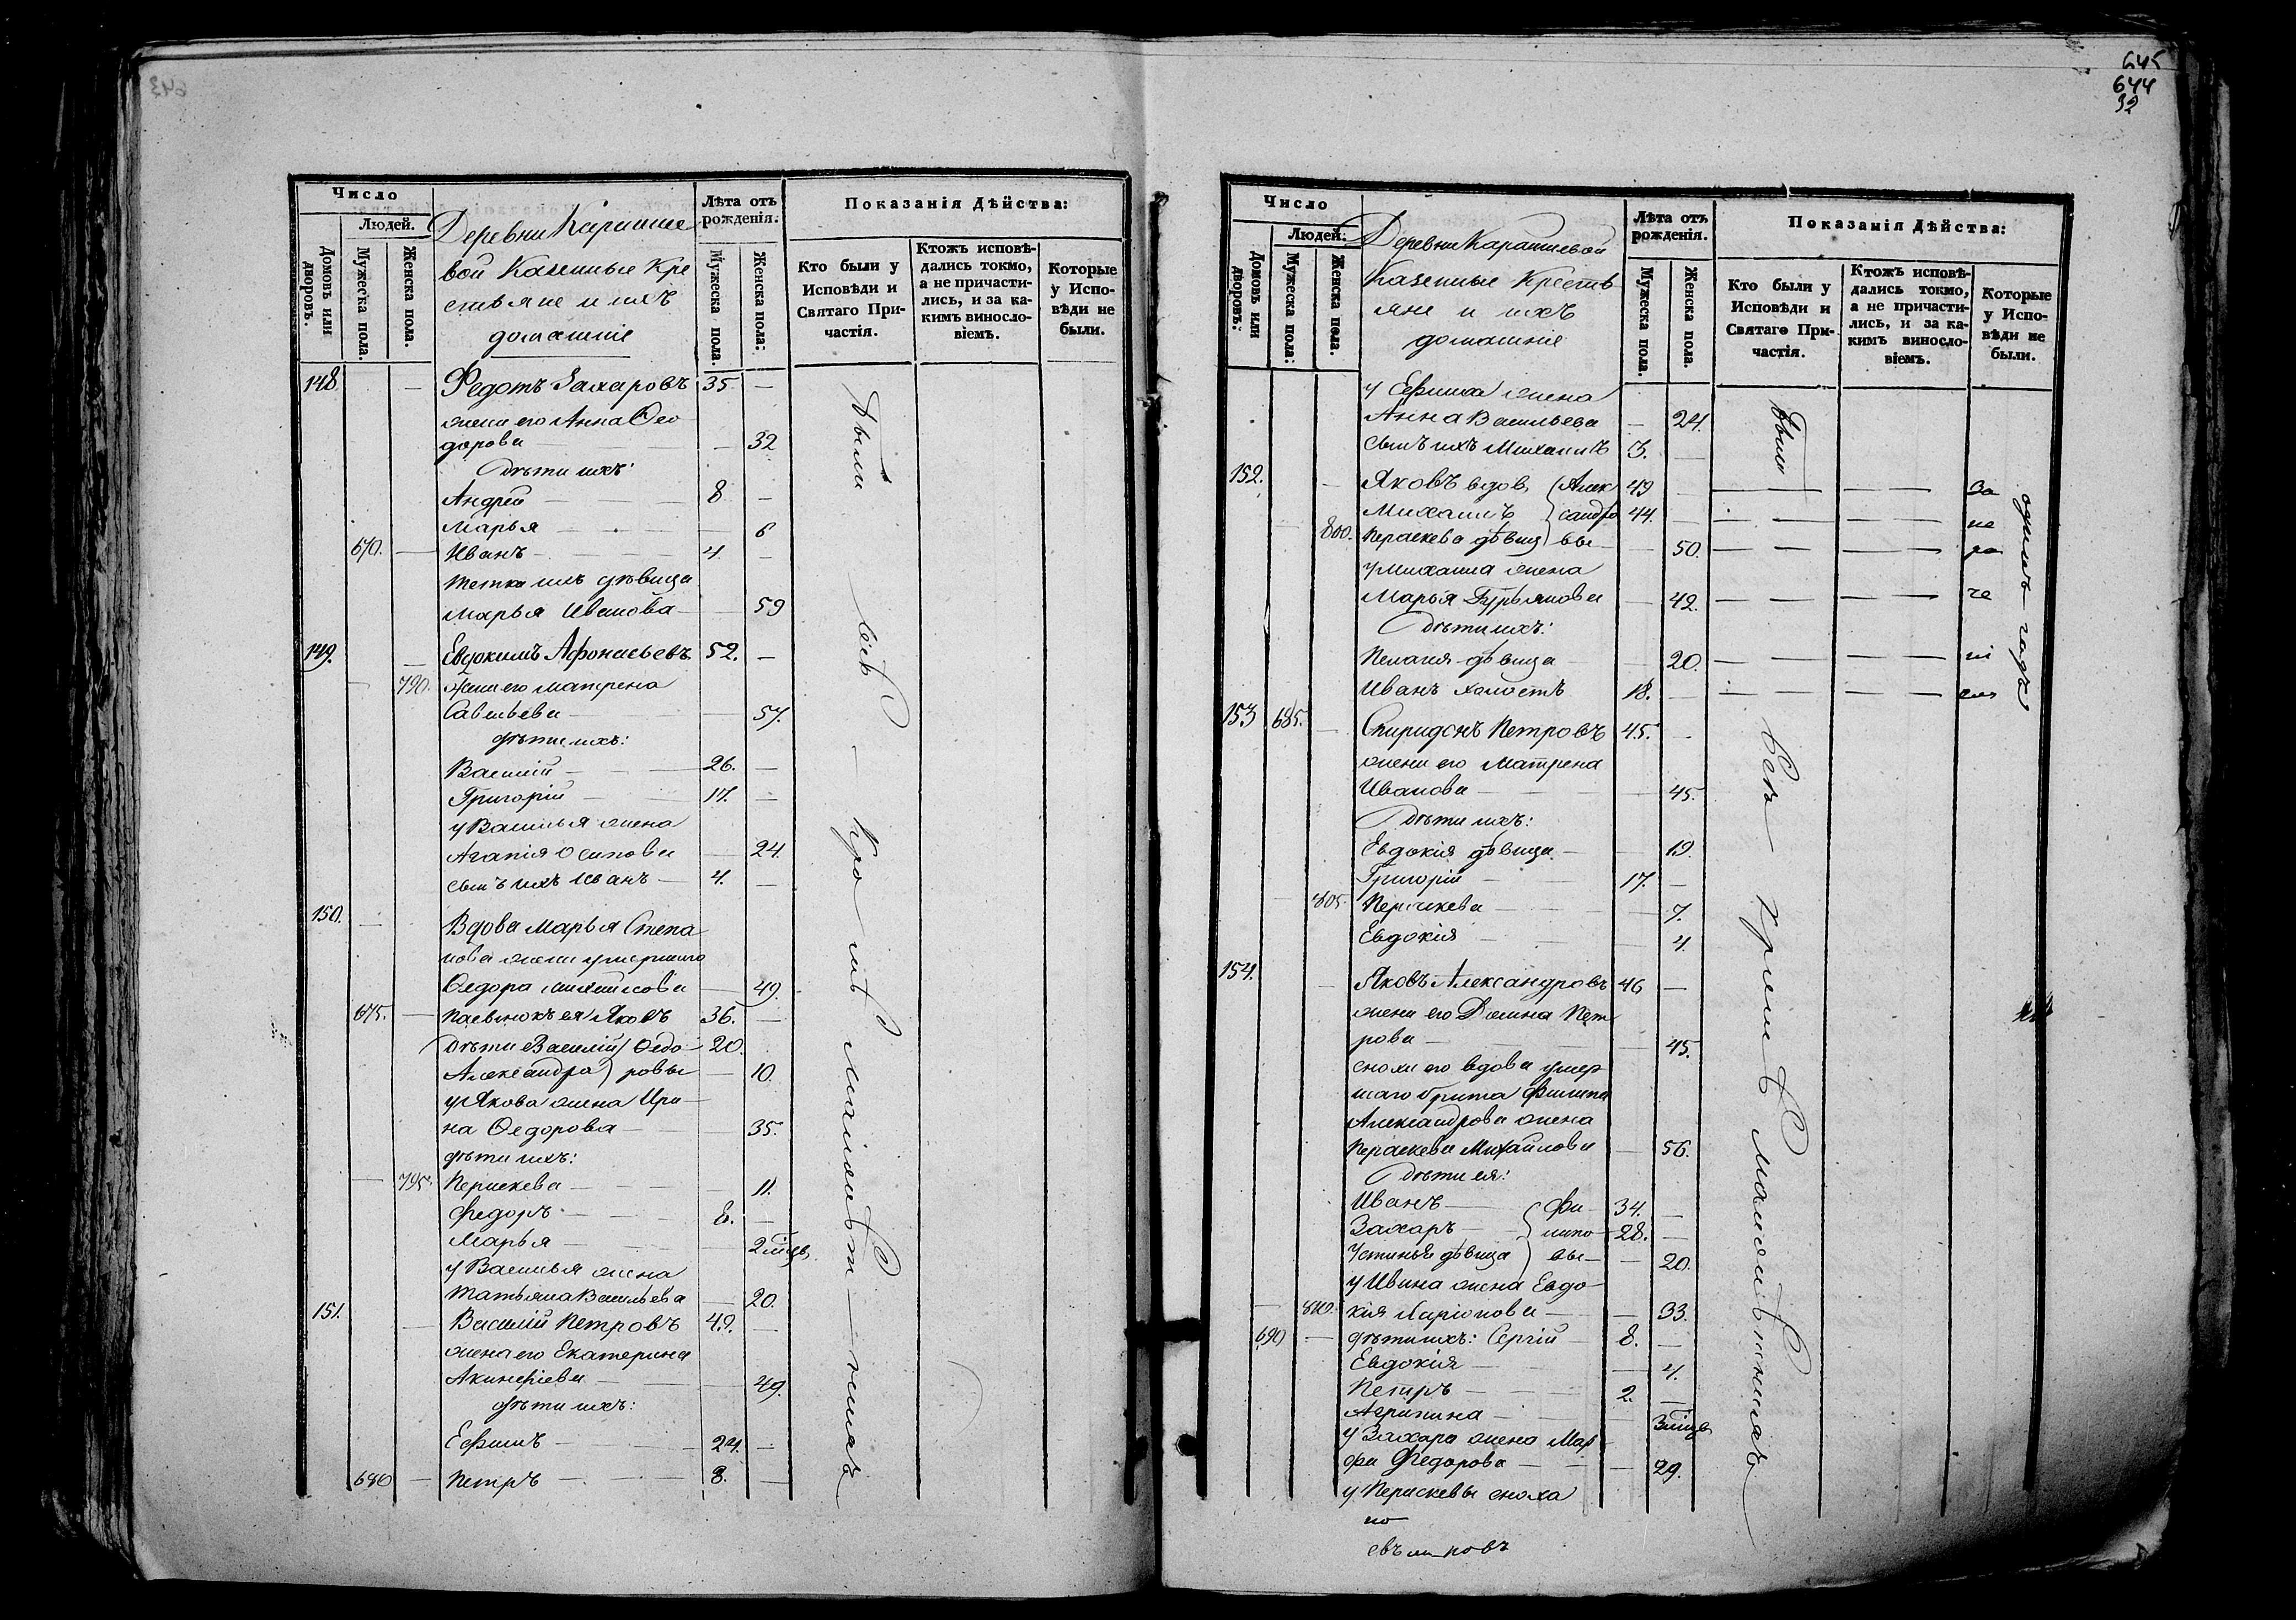 645
644
32
Число
Людей.
Домовъ или дворовъ.
Мужеска пола.
Женска пола.
Деревни Караше
вой Казенные Кре
стьяне и ихъ
домашніе
Лѣта отъ рожденія.
Мужеска пола.
Женска пола:
Показанія Дѣйства:
Кто были у Исповѣди и Святаго При-частія.
Ктожъ исповѣ-дались токмо, а не причасти-лись, и за ка-кимъ винослo-віемъ.
Которые у Испо-вѣди не были.
148. — Федотъ Захаровъ 35. —
жена его Анна Ѳео
дорова — 32
Дѣти ихъ:
Андрей 8 —
Марья — 6
670. — Иванъ 4. —
тетка ихъ дѣвица
Марья Иванова — 59
149. — Евдокимъ Афонасьевъ 52. —
— 790. жена его Матрена
Савельева — 57.
дѣти ихъ:
Василій 26. —
Григорій 17. —
у Василья жена
Агапія Осипова — 24.
сынъ ихъ Иванъ 4. —
150. — Вдова Марья Степа
нова жена умершаго
Ѳедора Михайлова — 49.
675. — Пасынокъ ея Яковъ 36. —
Дѣти Василій Ѳедо 20.
Александра ровы — 10.
у Якова жена Ири
на Ѳедорова — 35.
дѣти ихъ:
— 795. Параскева — 11.
Федоръ 8. —
Марья — 2 мѣсц.
у Василья жена
Татьяна Васильева — 20.
151. — Василій Петровъ 49. —
жена его Екатерина
Акинфіева — 49.
дѣти ихъ:
Ефимъ 24. —
680 — Петръ 8. —
Были всѣ — кромѣ малолѣт — нихъ
Число
Людей.
Домовъ или дворовъ:
Мужеска пола:
Женска пола.
Деревни Карашевой
Казенные Крестья
яне и ихъ
домашніе
Лѣта отъ рожденія.
Мужеска пола.
Женска пола.
Показанія Дѣйства:
Кто были у Исповѣди и Святаго При-частія.
Ктожъ исповѣ-дались токмо, а не причасти-лись, и за ка-кимъ винослo-віемъ.
Которые у Испо-вѣди не были.
у Ефима жена
Анна Васильева — 24.
сынъ ихъ Михаилъ 3. —
Были
152. — Яковъ вдов. Алек 49 — За
Михаилъ сандро 44. — не
800. Параскева дѣвица вы — 50. ра
у Михаила жена
Марья Гурьянова — 42. че
Дѣти ихъ:
Пелагія дѣвица — 20. ні
Иванъ холостъ 18. — емъ
одинъ годъ
153 685. — Спиридонъ Петровъ 45. —
жена его Матрена
Иванова — 45.
Дѣти ихъ:
Евдокія дѣвица — 19.
Григорій 17. —
— 805. Параскева — 7.
Евдокія — 4.
154. — Яковъ Александровъ 46 —
жена его Домна Пет
рова — 45.
сноха его вдова умер
шаго брата Филипа
Александрова жена
Параскева Михайлова — 56.
Дѣти ея:
Иванъ Фи 34. —
Захаръ липо 28. —
Устинья дѣвица вы — 20.
у Ивана жена Евдо
— 810. кія Ларіонова — 33.
690 — дѣти ихъ: Сергій 8. —
Евдокія — 4.
Петръ 2. —
Агрипина — 3 мѣсц.
у Захара жена Мар
фа Федорова — 29.
у Параскевы сноха
Всѣ — кромѣ малолѣтнихъ